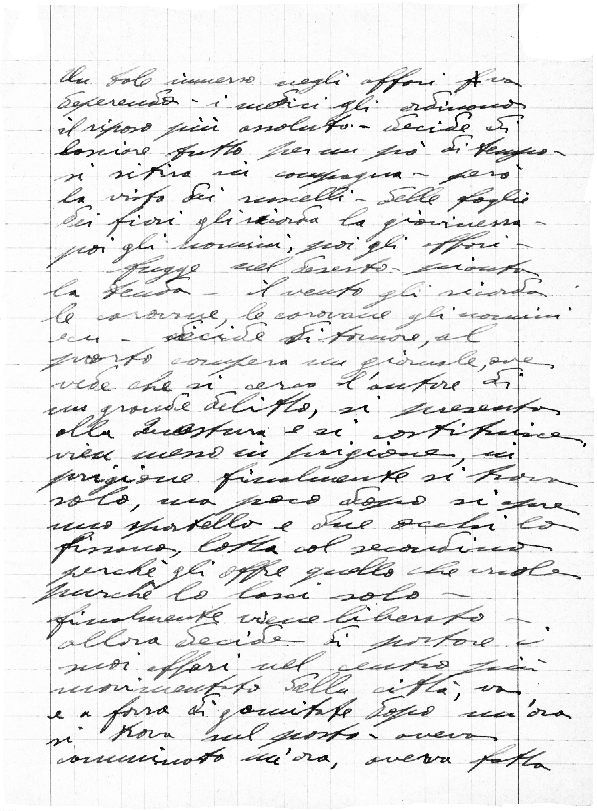 Un tale immerso negli affari va
deperendo - i medici gli ordinano
il riposo più assoluto - decide di
lasciare tutto per un pò di tempo -
si ritira in campagna - però
la vista dei ruscelli - delle foglie
dei fiori gli ricorda la giovinezza -
poi gli uomini, poi gli affari -
fugge nel deserto - pianta
la tenda - il vento gli ricorda
le carovane, le carovane gli uomini
ecc - decide di tornare, al
porto compera un giornale, ove
vede che si cerca l'autore di
un grande delitto, si presenta
alla Questura e si costituisce,
vien messo in prigione, in
prigione finalmente si trova
solo, ma poco dopo si apre
uno sportello e due occhi lo
fissano, lotta col secondino
perchè gli offre quello che vuole
purchè lo lasci solo -
finalmente viene liberato -
allora decide di portare i
suoi affari nel centro più
movimentato della città, va
e a forza di gomitate dopo un'ora
si trova sul posto - aveva
camminato un'ora, aveva fatto